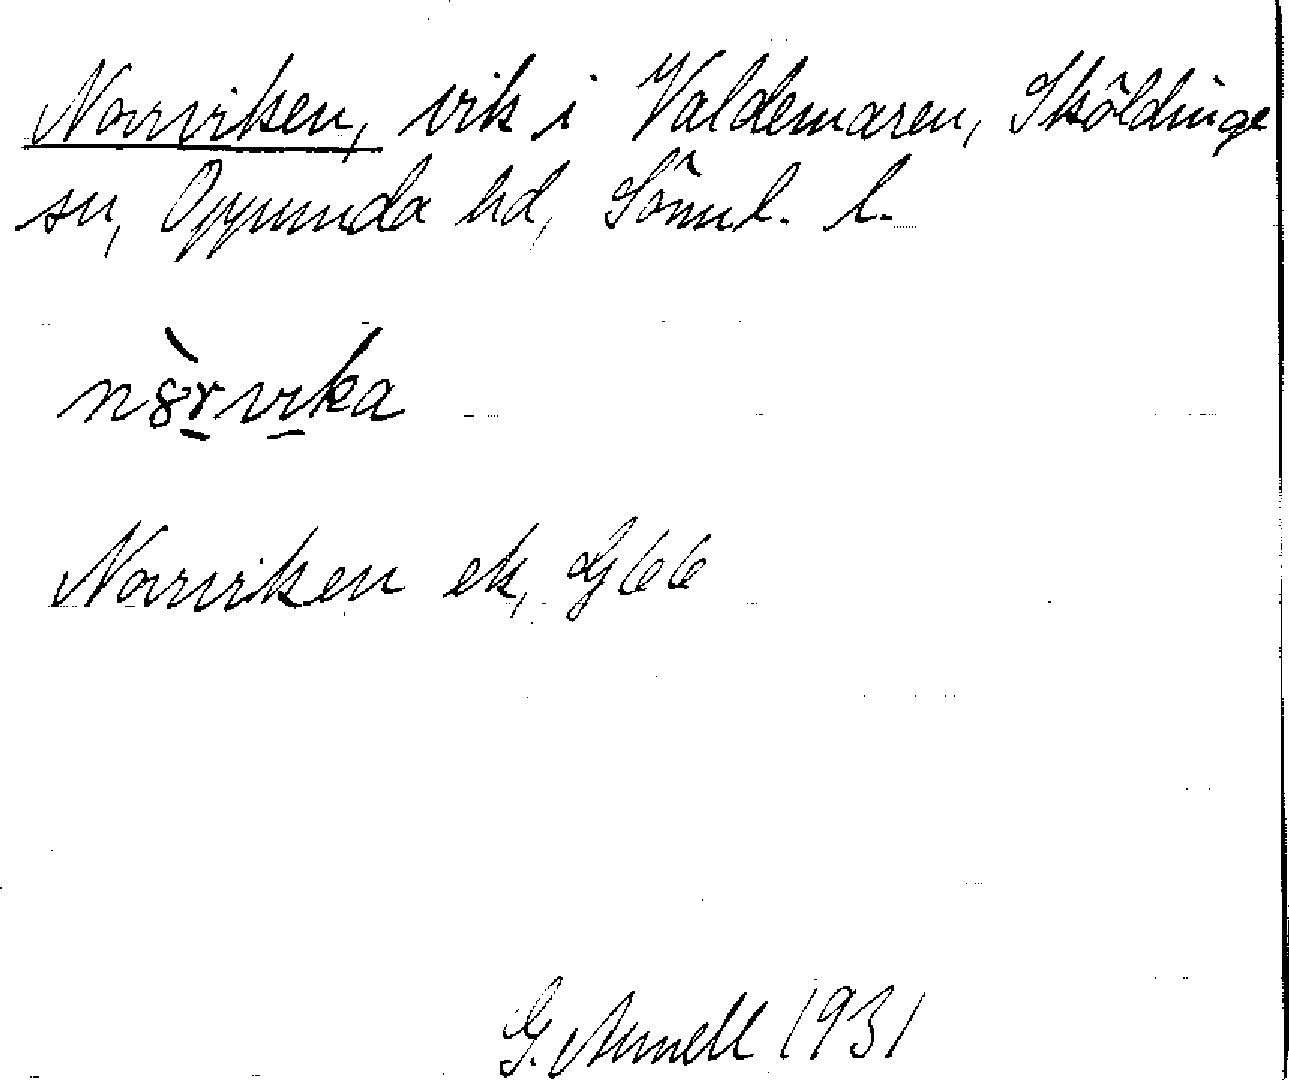 Norrviken, vik i Valdemaren, Sköldinge
sn, Oppunda hd, Söml. l.
nȣ̀rvika
Norrviken ek, G66
G. Arnell 1931